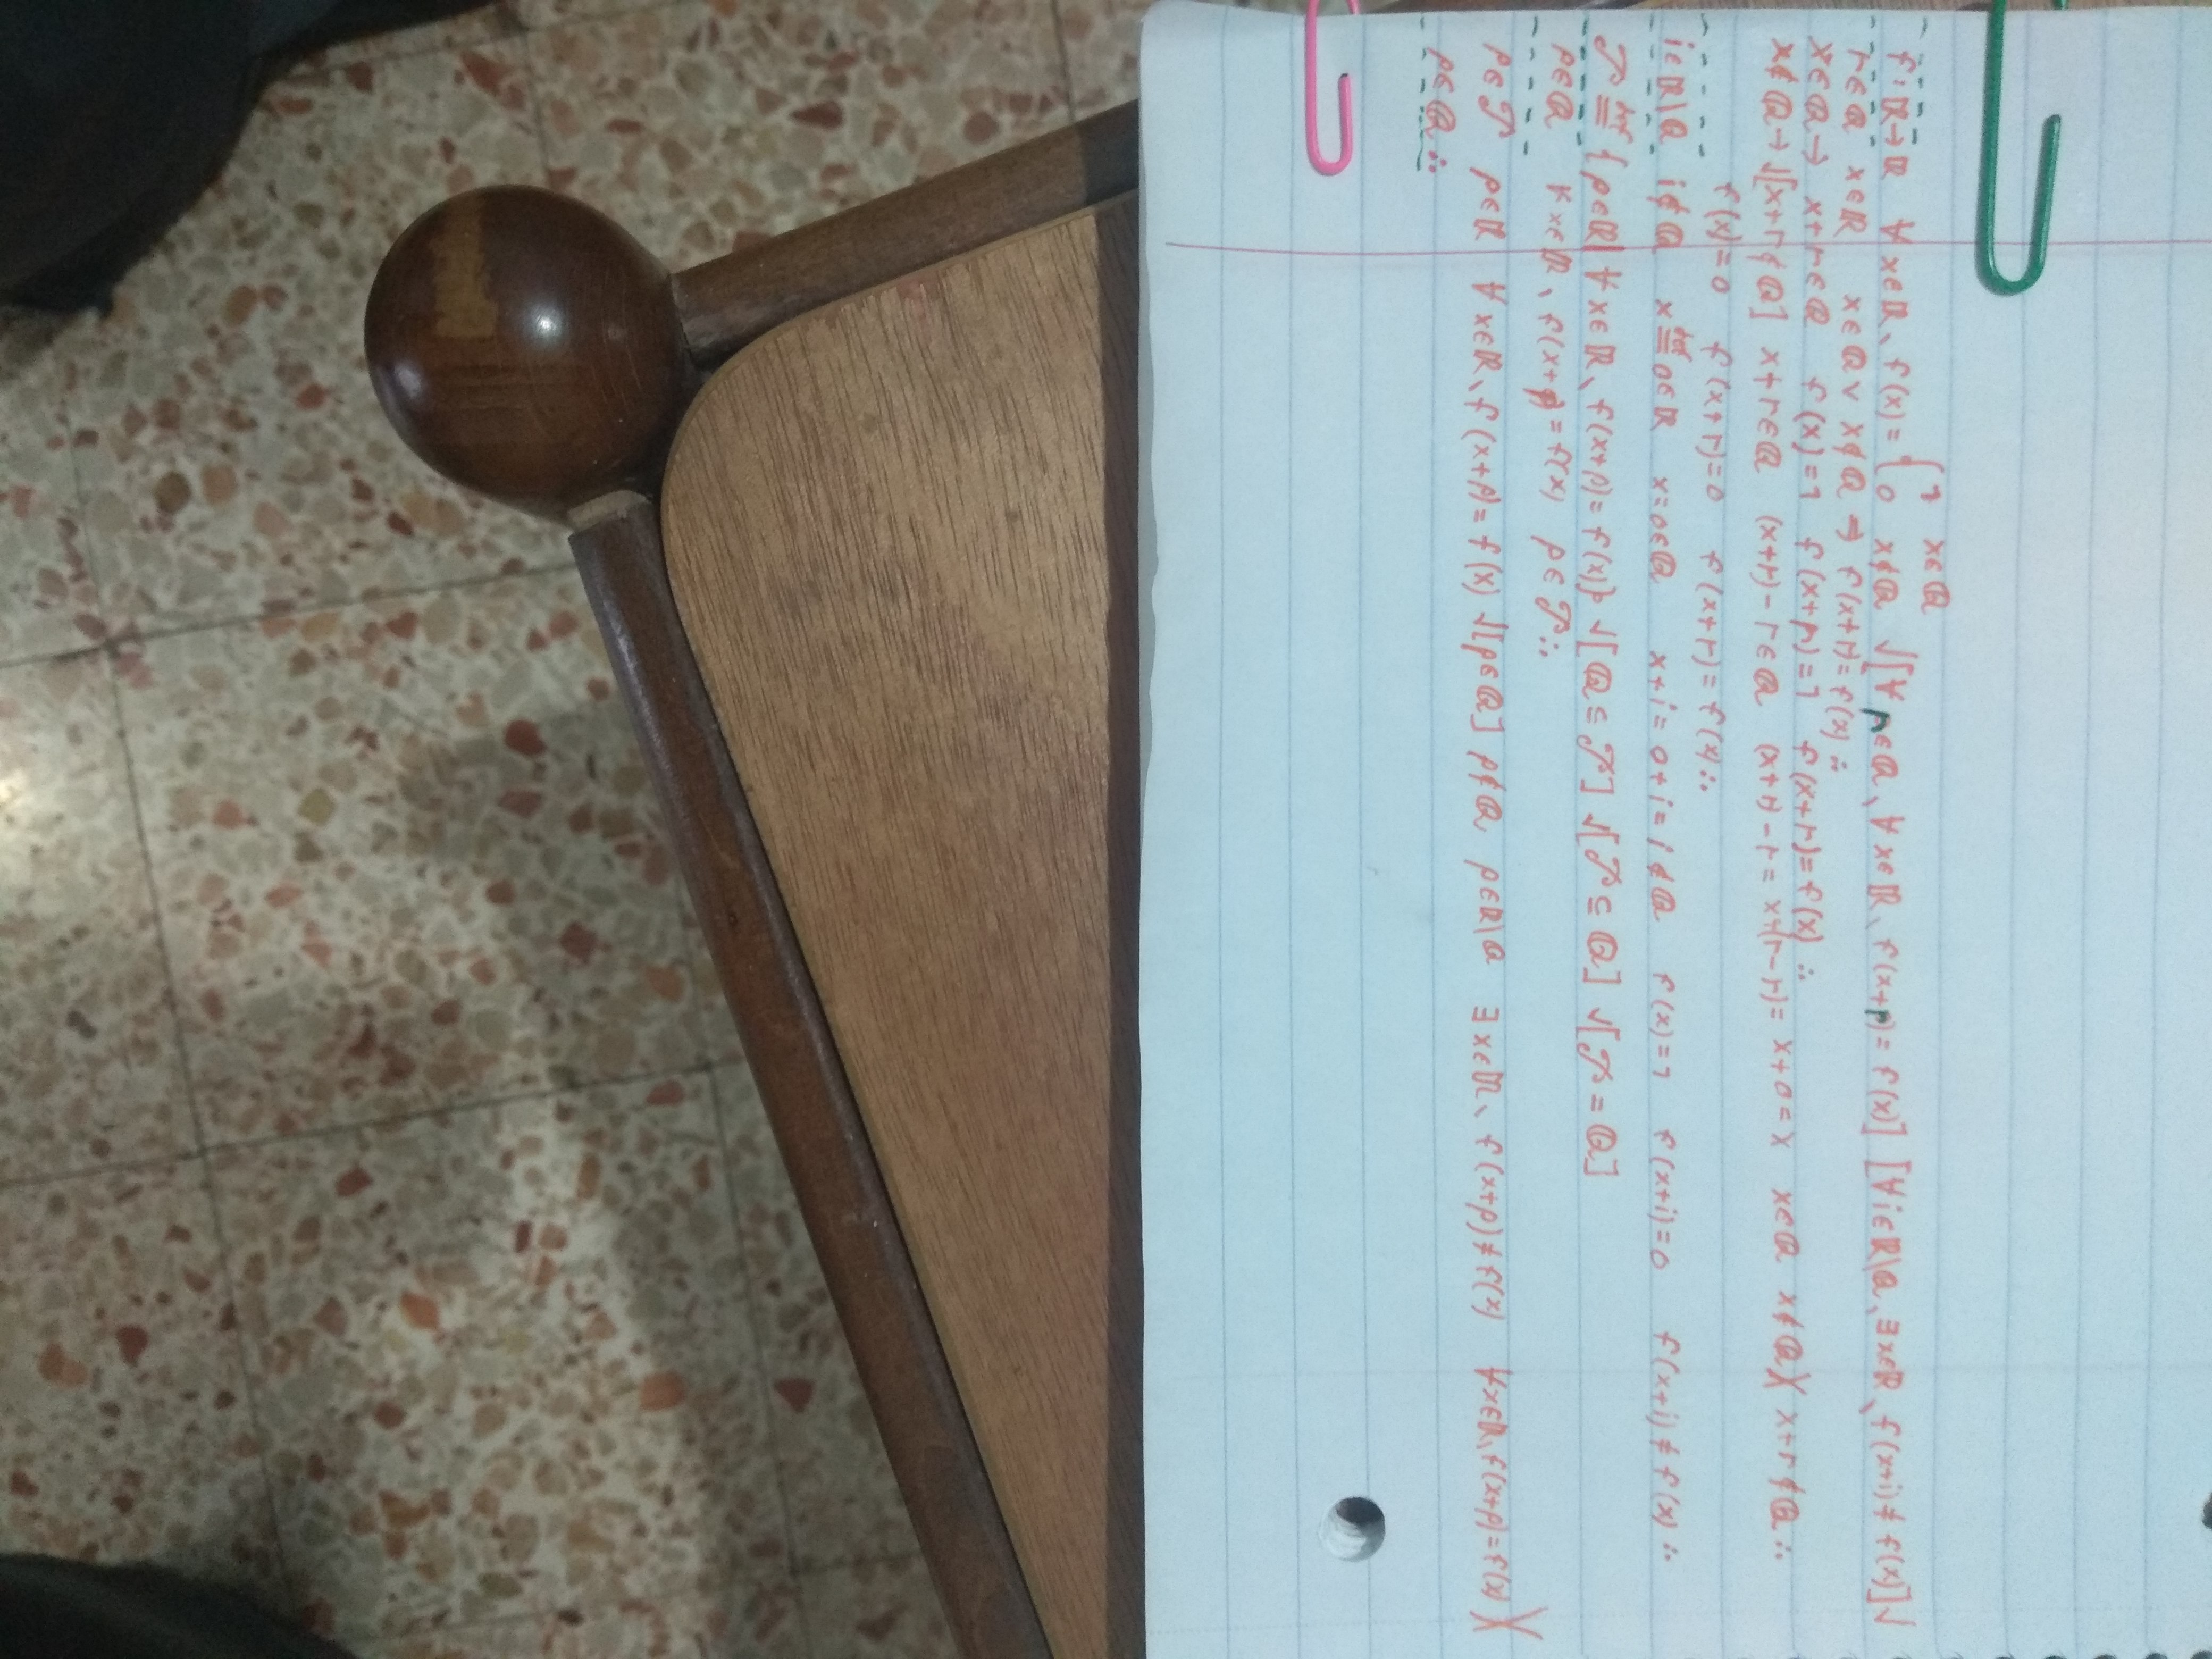 1 x∈ℚ
f:ℝ→ℝ ∀x∈ℝ, f(x)={ 0 x∉ℚ √[∀r∈ℚ, ∀x∈ℝ, f(x+r)=f(x)] [∀i∈ℝ\ℚ, ∃x∈ℝ, f(x+i)≠f(x)]√
r∈ℚ x∈ℝ x∈ℚ∨x∉ℚ ⇒ f(x+r)=f(x)∴
x∈ℚ→ x+r∈ℚ f(x)=1 f(x+r)=1 f(x+r)=f(x)∴
x∉ℚ→√[x+r∉ℚ] x+r∈ℚ (x+r)-r∈ℚ (x+r)-r=x+(r-r)=x+0=x x∈ℚ x∉ℚ)( x+r∉ℚ∴
f(x)=0 f(x+r)=0 f(x+r)=f(x)∴
i∈ℝ\ℚ i∉ℚ x≝0∈ℝ x=0∈ℚ x+i=0+i=i∉ℚ f(x)=1 f(x+i)=0 f(x+i)≠f(x)∴
𝒫≝{p∈ℝ|∀x∈ℝ, f(x+p)=f(x)} √[ℚ⊆𝒫] √[𝒫⊆ℚ] √[𝒫=ℚ]
p∈ℚ ∀x∈ℝ, f(x+p)=f(x) p∈𝒫∴
p∈𝒫 p∈ℝ ∀x∈ℝ, f(x+p)=f(x) √[p∈ℚ] p∉ℚ p∈ℝ\ℚ ∃x∈ℝ, f(x+p)≠f(x) ∀x∈ℝ, f(x+p)=f(x) )(
p∈ℚ∴